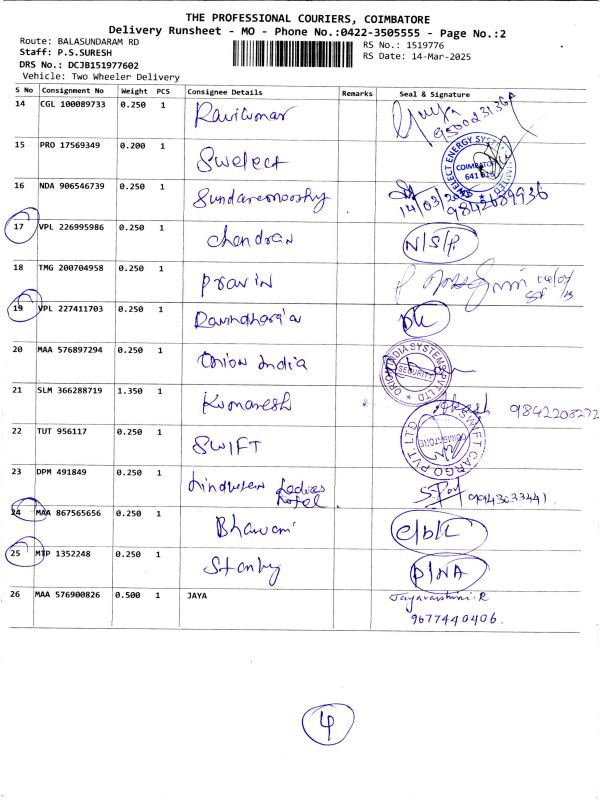 THE PROFESSIONAL COURIERS, COIMBATORE
Delivery Runsheet - MO - Phone No.:0422-3505555 - Page No.:2
Route: BALASUNDARAM RD
RS No.: 1519776
Staff: P.S.SURESH
RS Date: 14-Mar-2025
DRS No.: DCJB151977602
Vehicle: Two Wheeler Delivery
S No Consignment No Weight PCS Consignee Details Remarks Seal & Signature
14 CGL 100089733 0.250 1 Ravikumar
15 PRO 17569349 0.200 1 Swelect COIMBATORE
16 NDA 906546739 0.250 1 Sundaramoorthy 14/03/2025 9842689936
17 VPL 226995986 0.250 1 chandran N/S/P
18 TMG 200704958 0.250 1 pravin
19 VPL 227411703 0.250 1 D/L
20 MAA 576897294 0.250 1 Onion India SECURITY
21 SLM 366288719 1.350 1 Kumaresh Akash 9842208272
22 TUT 956117 0.250 1 SWIFT SWIFT CARGO PVT. LTD COIMBATORE
23 DPM 491849 0.250 1 Hotel 9943033441
24 MAA 867565656 0.250 1 Bhavani C/b/L
25 MTP 1352248 0.250 1 Stanby D/NA
26 MAA 576900826 0.500 1 JAYA Jayavarshini.R
9677440406.
4